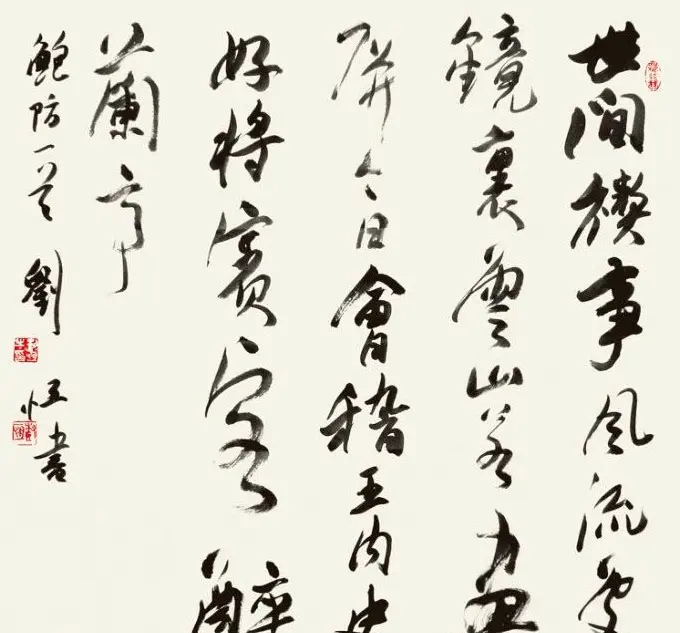 世間禊事風流處
鏡裏雲山若畫
屏今日會稽王內史
好將賓客醉
蘭亭
鮑防一首 劉恒書